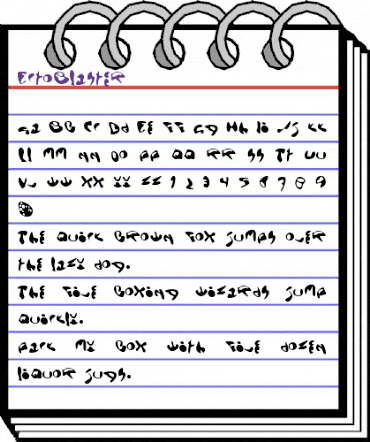 EctoBlaster
aa BB Cc Dd EE FF GG Hh Ii Jj KK
Ll MM NN OO PP QQ RR SS TT UU
VV WW XX YY ZZ 1 2 3 4 5 6 7 8 9
0
The quick brown fox jumps over
the lazy dog.
The five boxing wizards jump
quickly.
Pack my box with five dozen
liquor jugs.